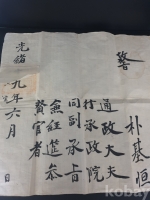 敎
朴基恒
通政大夫
行承政院
同副承旨
兼經筵參
贊官者
光緖
九年六月 日
kobay